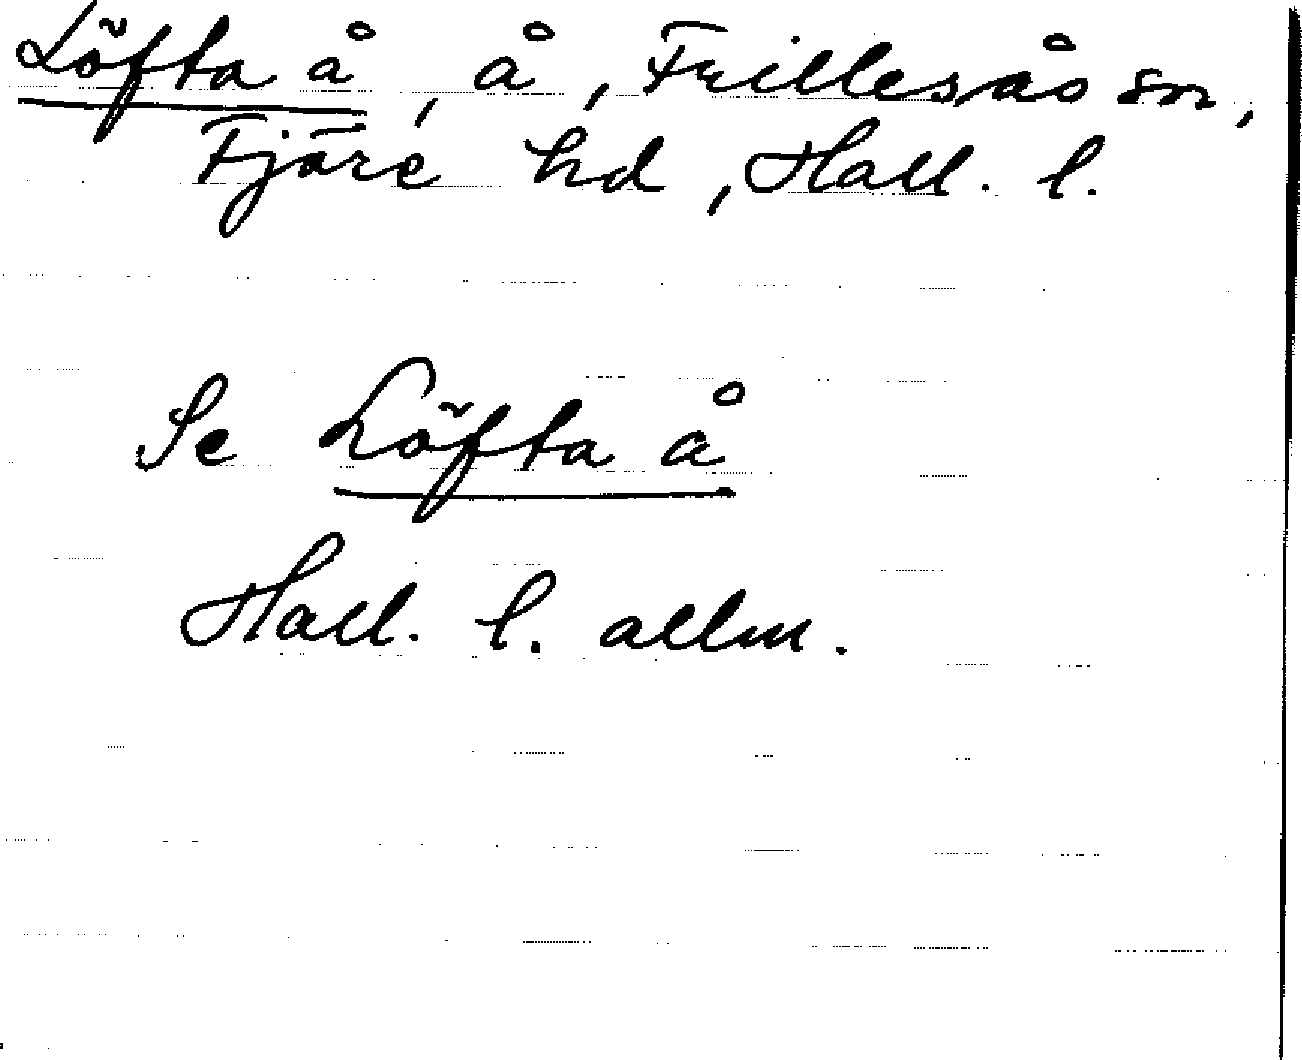 Löfta å, å, Frillesås sn,
Fjäre hd, Hall. l.
Se Löfta å
Hall. l. allm.